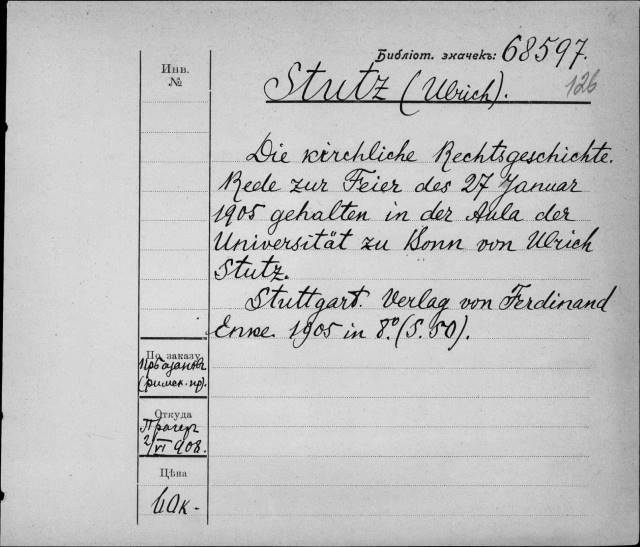 Библіот. значекъ: 68597.
126
Инв. №
Stutz (Ulrich).
Die kirchliche Rechtsgeschichte.
Rede zur Feier des 27 Januar
1905 gehalten in der Aula der
Universität zu Bonn von Ulrich
Stutz.
Stuttgart. Verlag von Ferdinand
Enke. 1905 in 8.° (S. 50).
По заказу
(римск. пр).
Откуда
Прагер
2/VI 908.
Цѣна
60к-